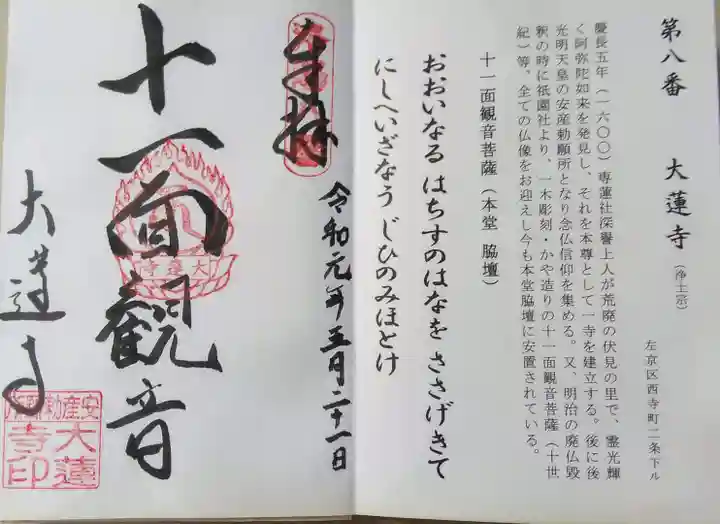 第八番 大蓮寺（浄土宗）
左京区西寺町二条下ル
慶長五年（一六〇〇）専蓮社深誉上人が荒廃の伏見の里で、霊光輝
く阿弥陀如来を発見し、それを本尊として一寺を建立する。後に後
光明天皇の安産勅願所となり念仏信仰を集める。又、明治の廃仏毀
釈の時に祇園社より、一木彫刻・かや造りの十一面観音菩薩（十世
紀）等、全ての仏像をお迎えし今も本堂脇壇に安置されている。
十一面観音菩薩（本堂 脇壇）
おおいなる はちすのはなを ささげきて
にしへいざなう じひのみほとけ
奉拝
令和元年五月二十一日
十一面観音
大蓮寺
大蓮寺
安産勅願所
大蓮
寺印